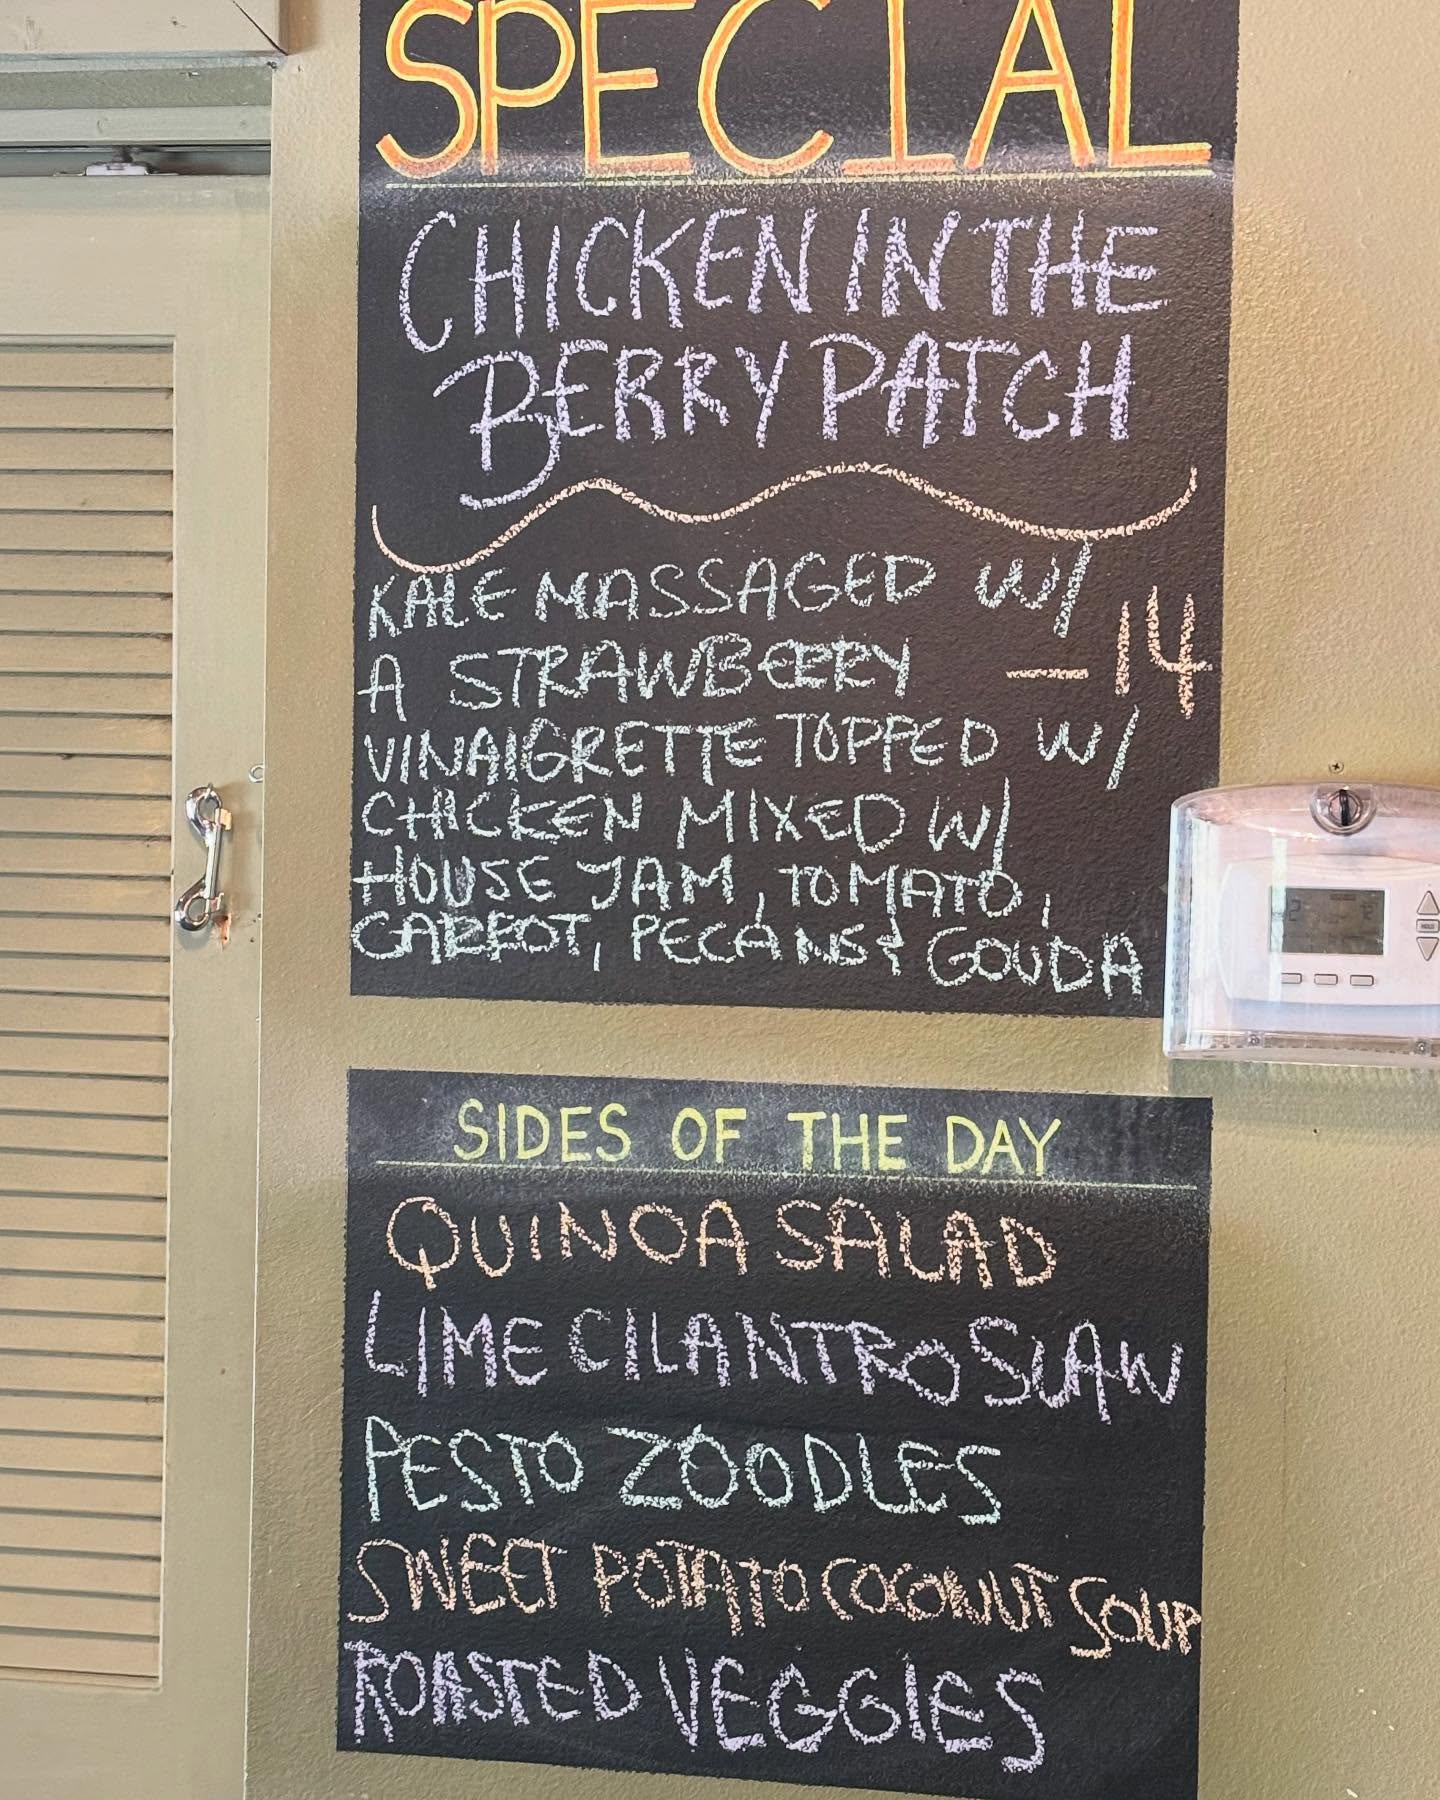 SPECIAL
CHICKEN IN THE
BERRY PATCH
KALE MASSAGED W/
A STRAWBERRY -14
VINAIGRETTE TOPPED W/
CHICKEN MIXED W/
HOUSE JAM, TOMATO,
CARROT, PECANS & GOUDA
SIDES OF THE DAY
QUINOA SALAD
LIME CILANTRO SLAW
PESTO ZOODLES
SWEET POTATO COCONUT SOUP
ROASTED VEGGIES